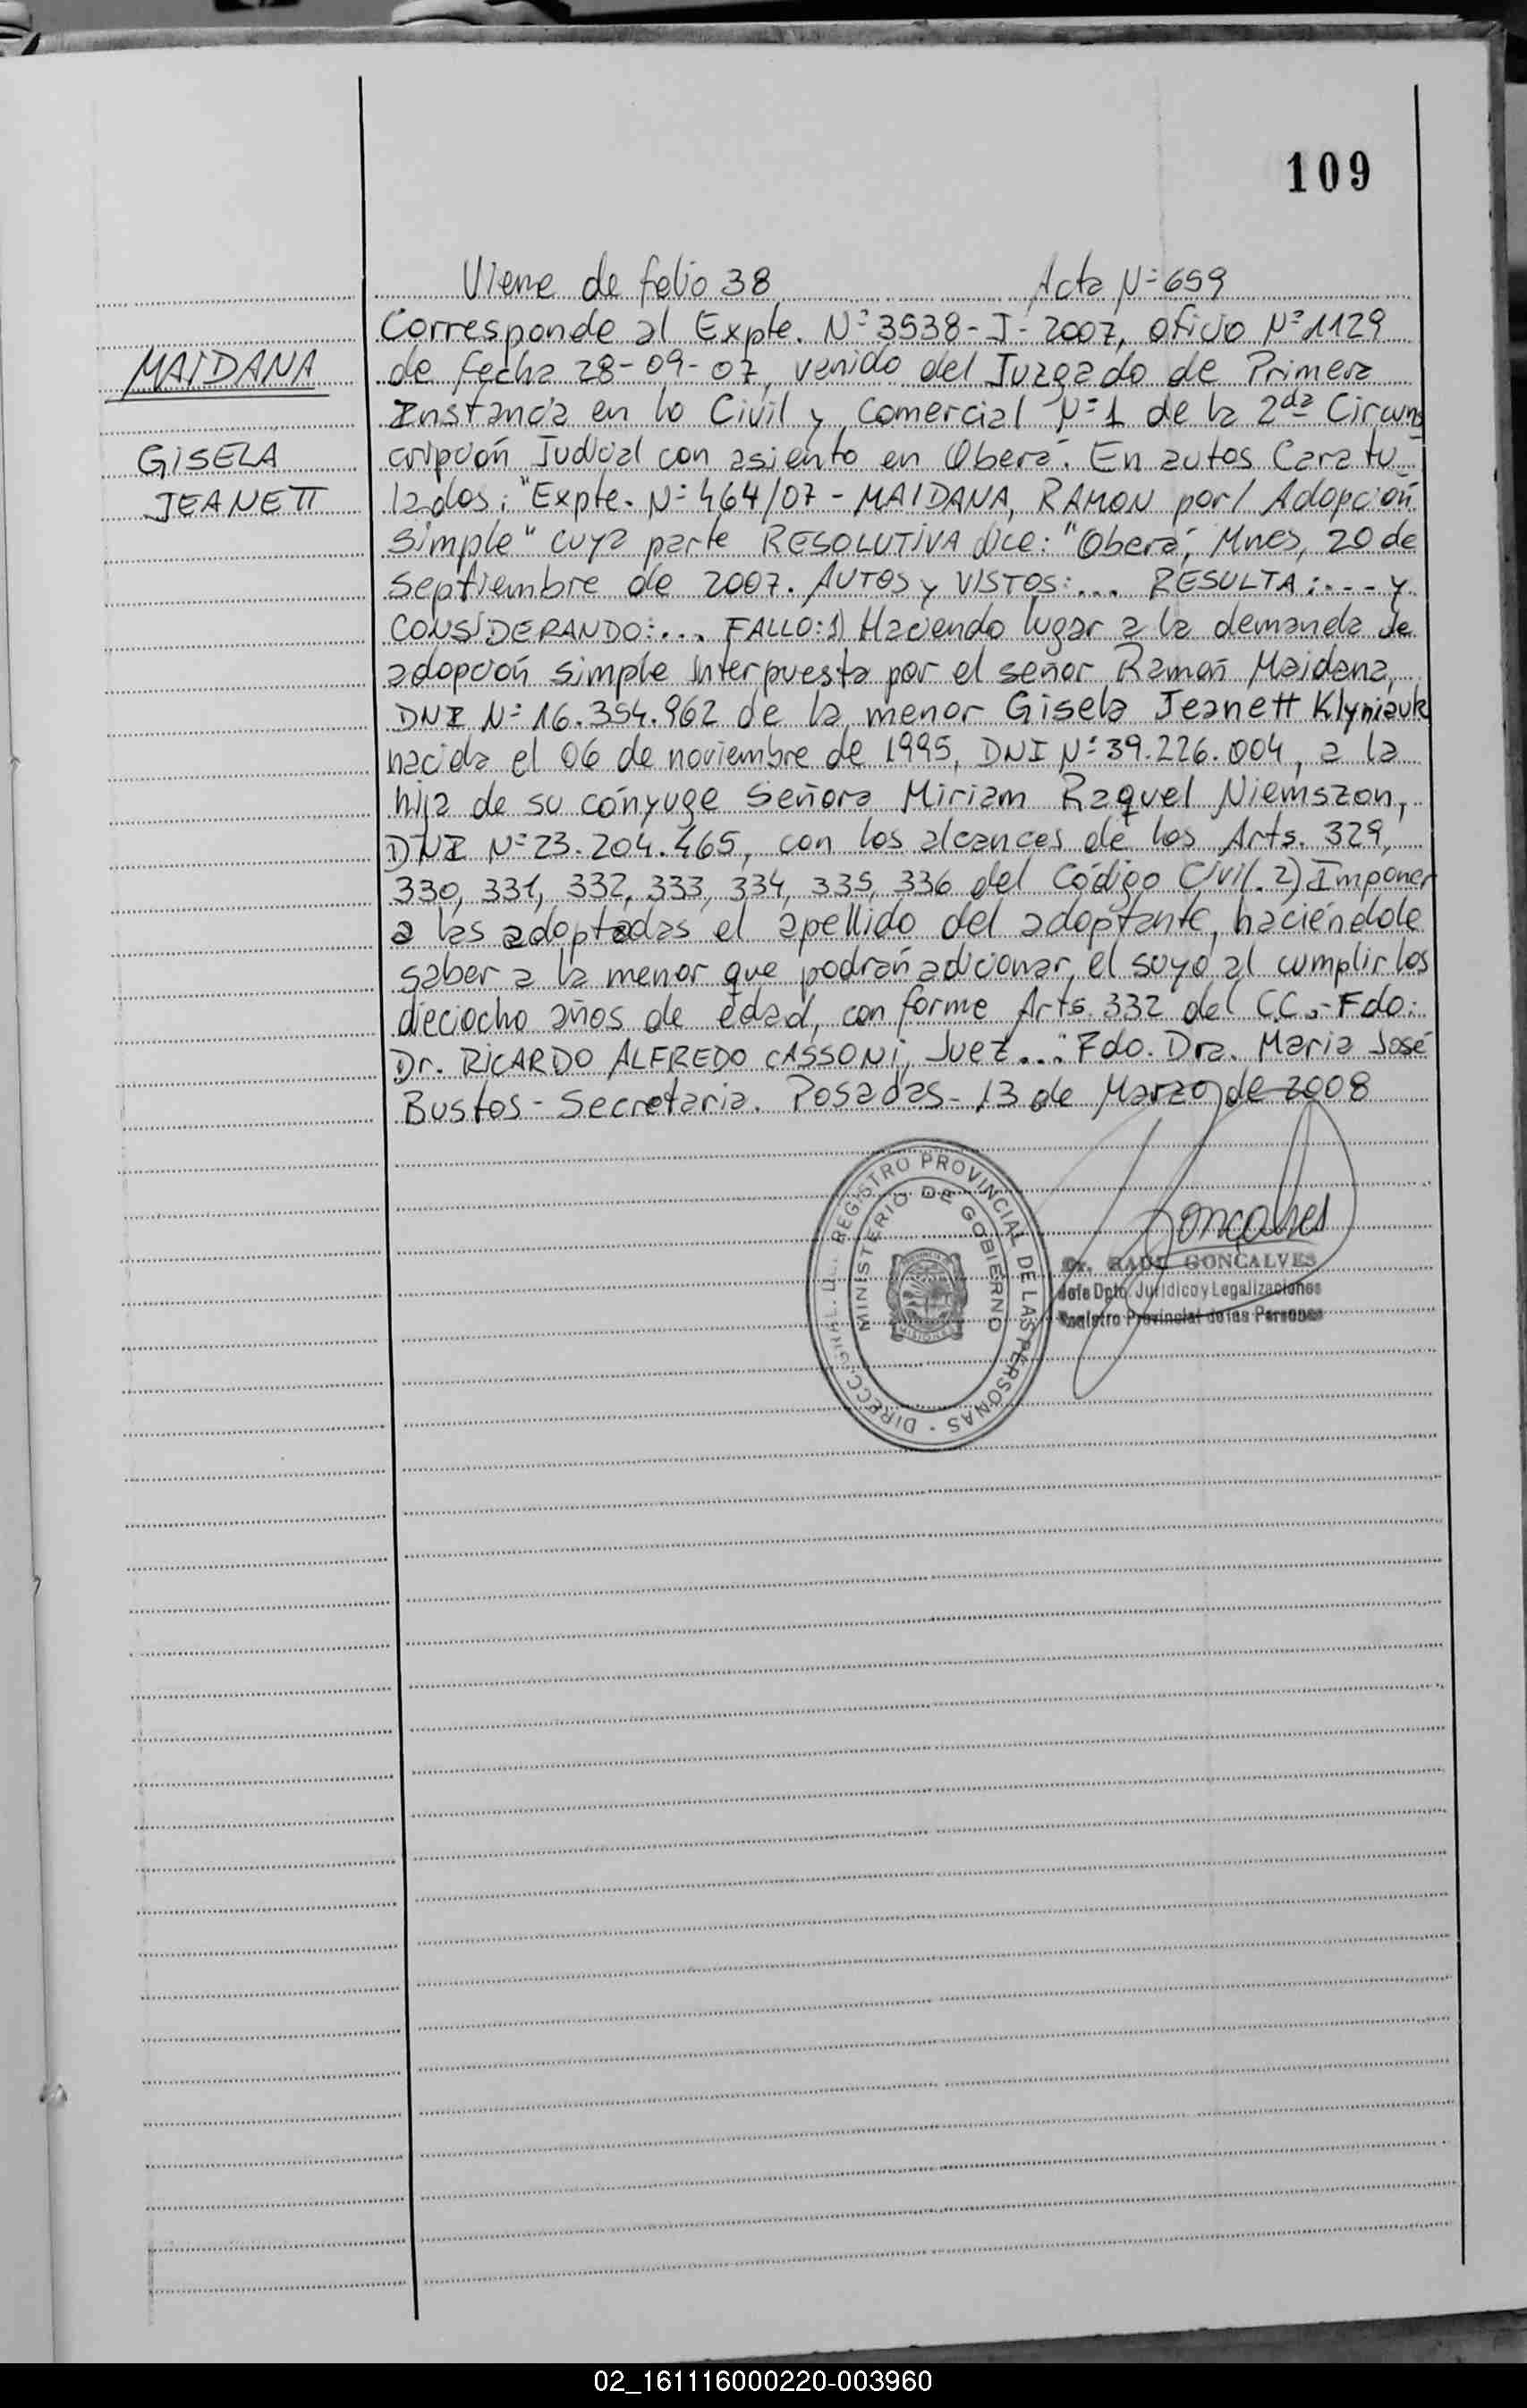 109
Viene de folio 38 Acta Nº 659
Corresponde al Expte. Nº 3538-J-2007, oficio Nº 1129
MAIDANA
de fecha 28-09-07, venido del Juzgado de Primera
Instancia en lo Civil y Comercial Nº 1 de la 2da Circuns
GISELA
cripción Judicial con asiento en Oberá. En autos Caratu
JEANETT
lados: "Expte. Nº 464/07 - MAIDANA, RAMON por/ Adopción
Simple" cuya parte RESOLUTIVA dice: "Oberá, Mnes, 20 de
septiembre de 2007. AUTOS y VISTOS:... RESULTA:.... y
CONSIDERANDO:... FALLO: 1) Haciendo lugar a la demanda de
adopción simple interpuesta por el señor Ramón Maidana,
DNI Nº 16.354.962 de la menor Gisela Jeanett Klyniauk
nacida el 06 de noviembre de 1995, DNI Nº 39.226.004, a la
hija de su cónyuge Señora Miriam Raquel Niemszon,
DNI Nº 23.204.465, con los alcances de los Arts. 329,
330, 331, 332, 333, 334, 335, 336 del Código Civil. 2) Imponer
a las adoptadas el apellido del adoptante, haciéndole
saber a la menor que podrán adicionar el suyo al cumplir los
dieciocho años de edad, conforme Arts. 332 del C.C.- Fdo:
Dr. RICARDO ALFREDO CASSONI, Juez..." Fdo. Dra. Maria José
Bustos - Secretaria. Posadas - 13 de Marzo de 2008
REGISTRO PROVINCIAL DE LAS PERSONAS
MINISTERIO DE GOBIERNO
MISIONES
Gonçalves
Dr. RAUL GONÇALVES
Jefe Dpto. Jurídico y Legalizaciones
Registro Provincial de las Personas
02_161116000220-003960